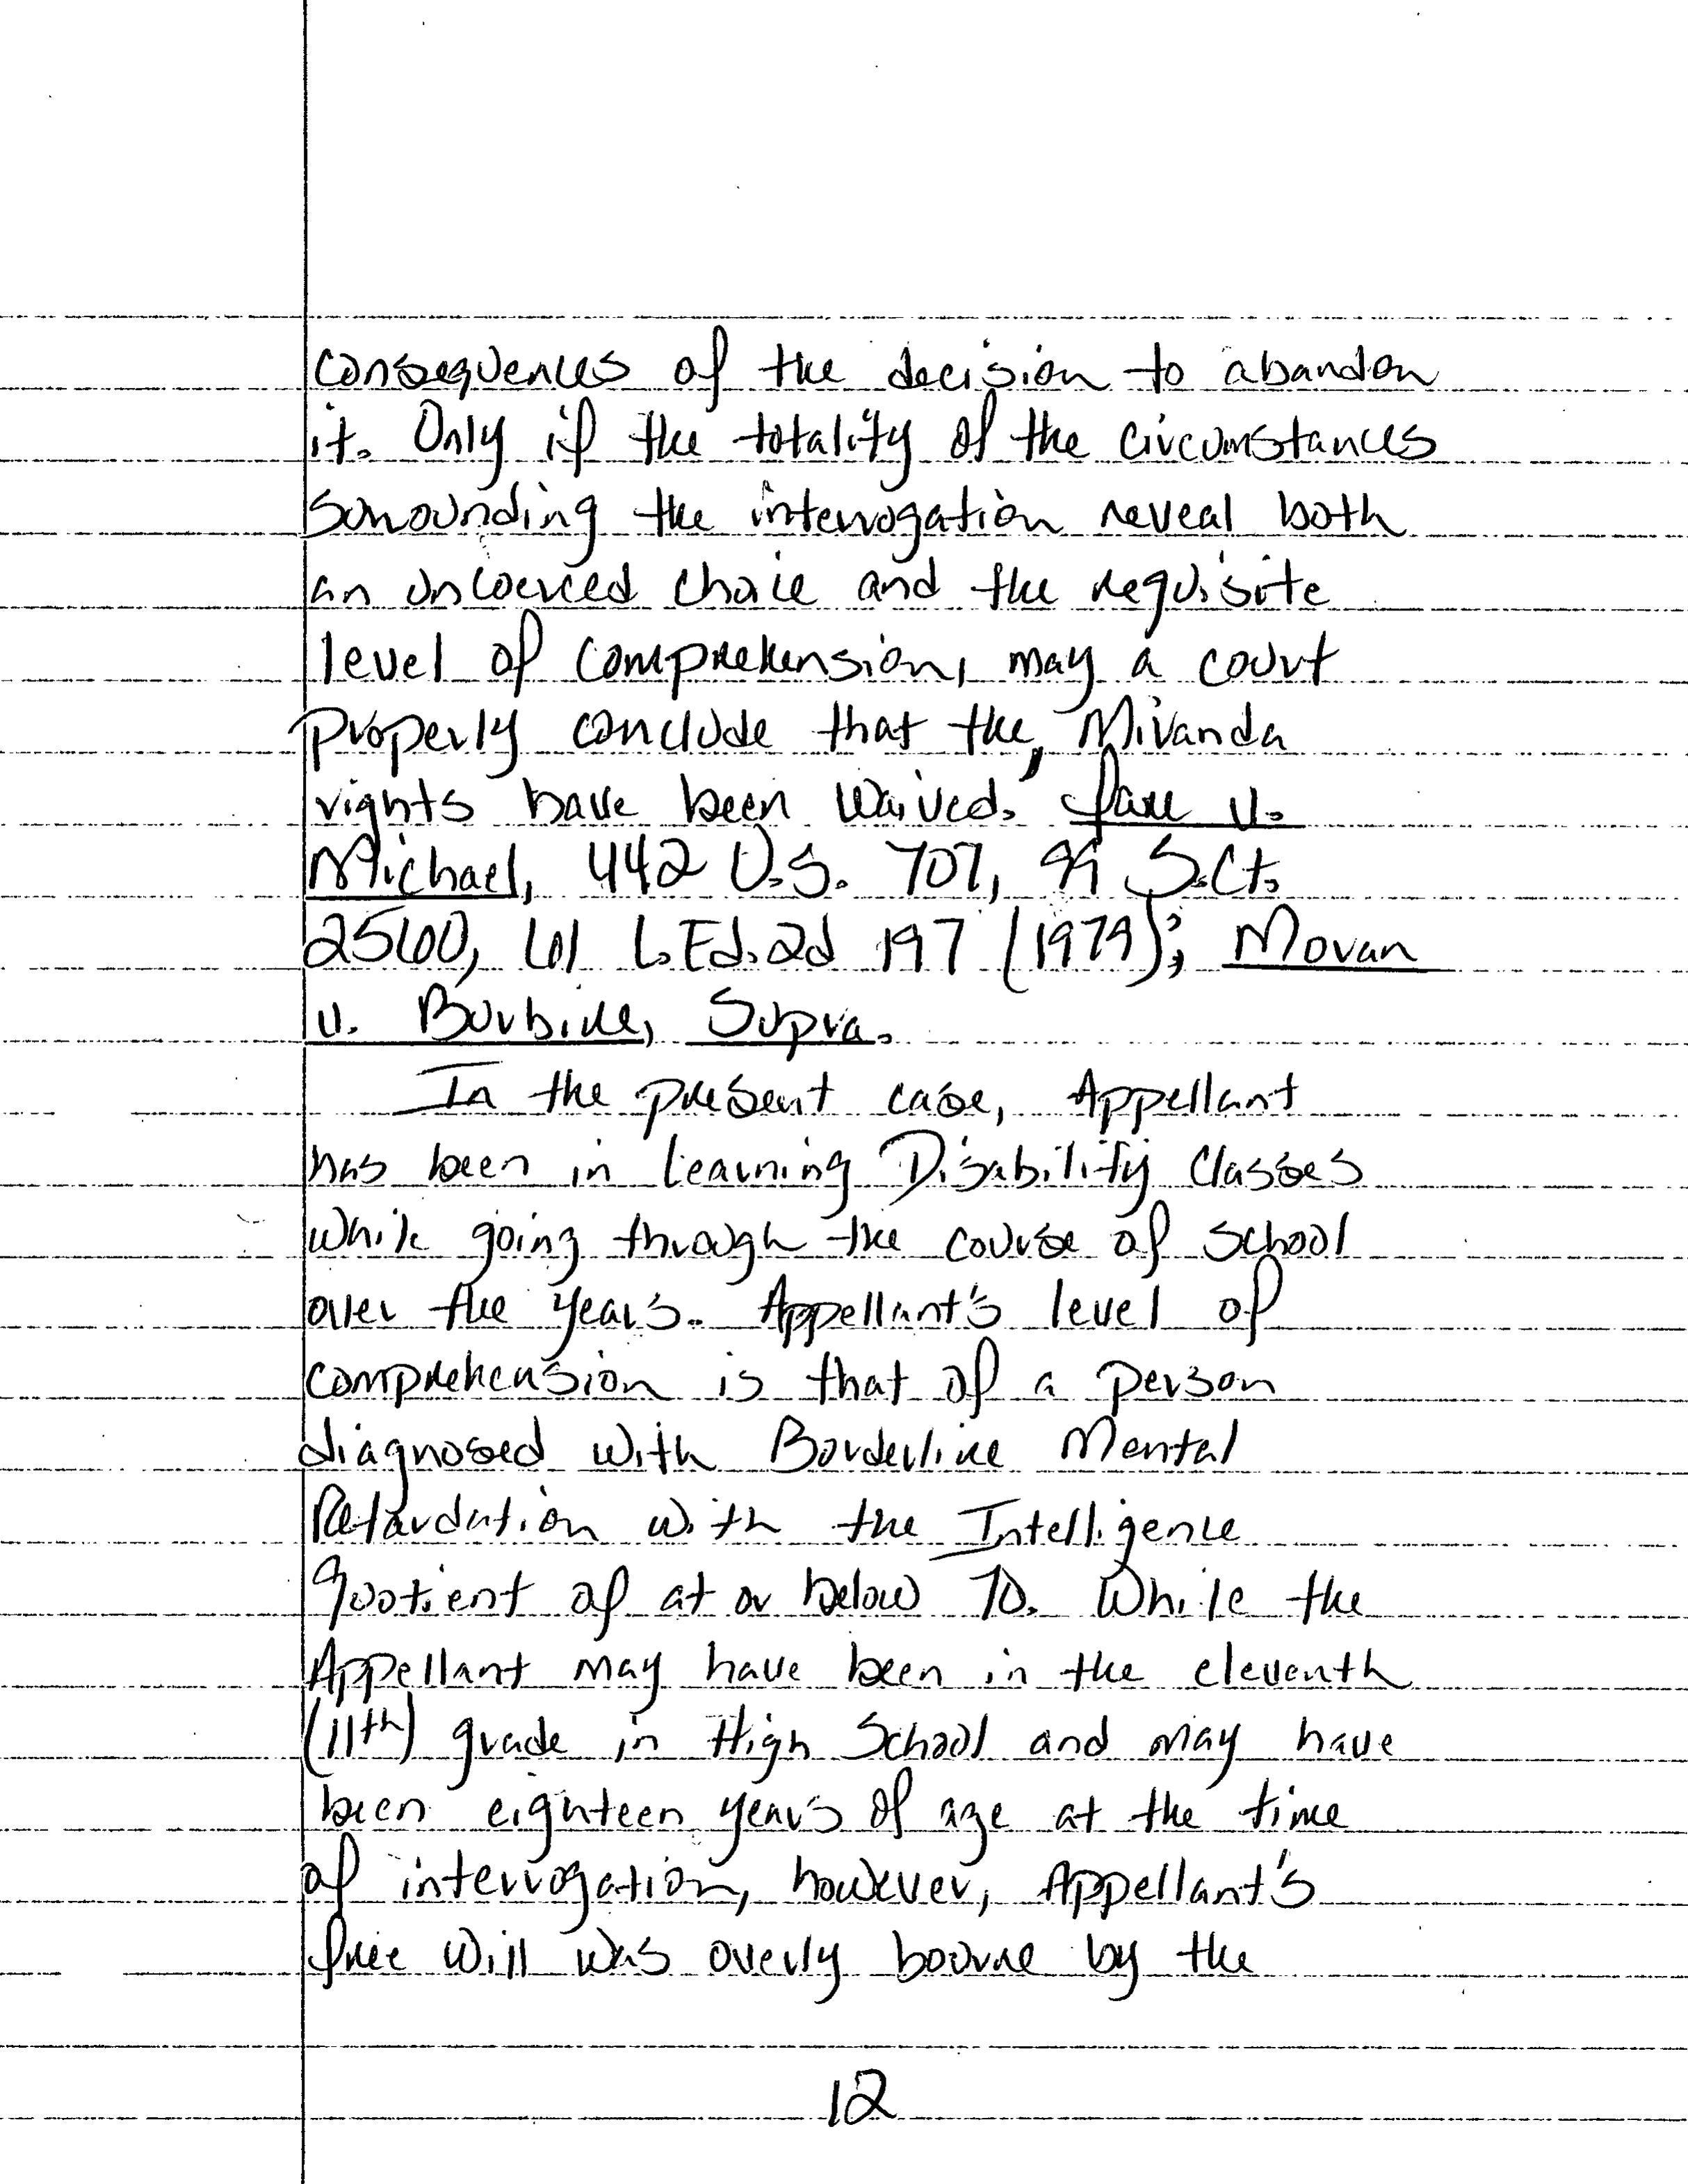 consequences of the decision to abandon
it. Only if the totality of the circumstances
surrounding the interrogation reveal both
an uncoerced choice and the requisite
level of comprehension, may a court
properly conclude that the, Miranda
rights have been waived. Fare v.
Michael, 442 U.S. 707, 99 S.Ct.
2560, 61 L.Ed.2d 197 (1979); Moran
v. Burbine, Supra.
In the present case, Appellant
has been in Learning Disability Classes
while going through the course of School
over the years. Appellant's level of
comprehension is that of a person
diagnosed with Borderline Mental
Retardation with the Intelligence
Quotient of at or below 70. While the
Appellant may have been in the eleventh
(11th) grade in High School and may have
been eighteen years of age at the time
of interrogation, however, Appellant's
free will was overly bourne by the
12